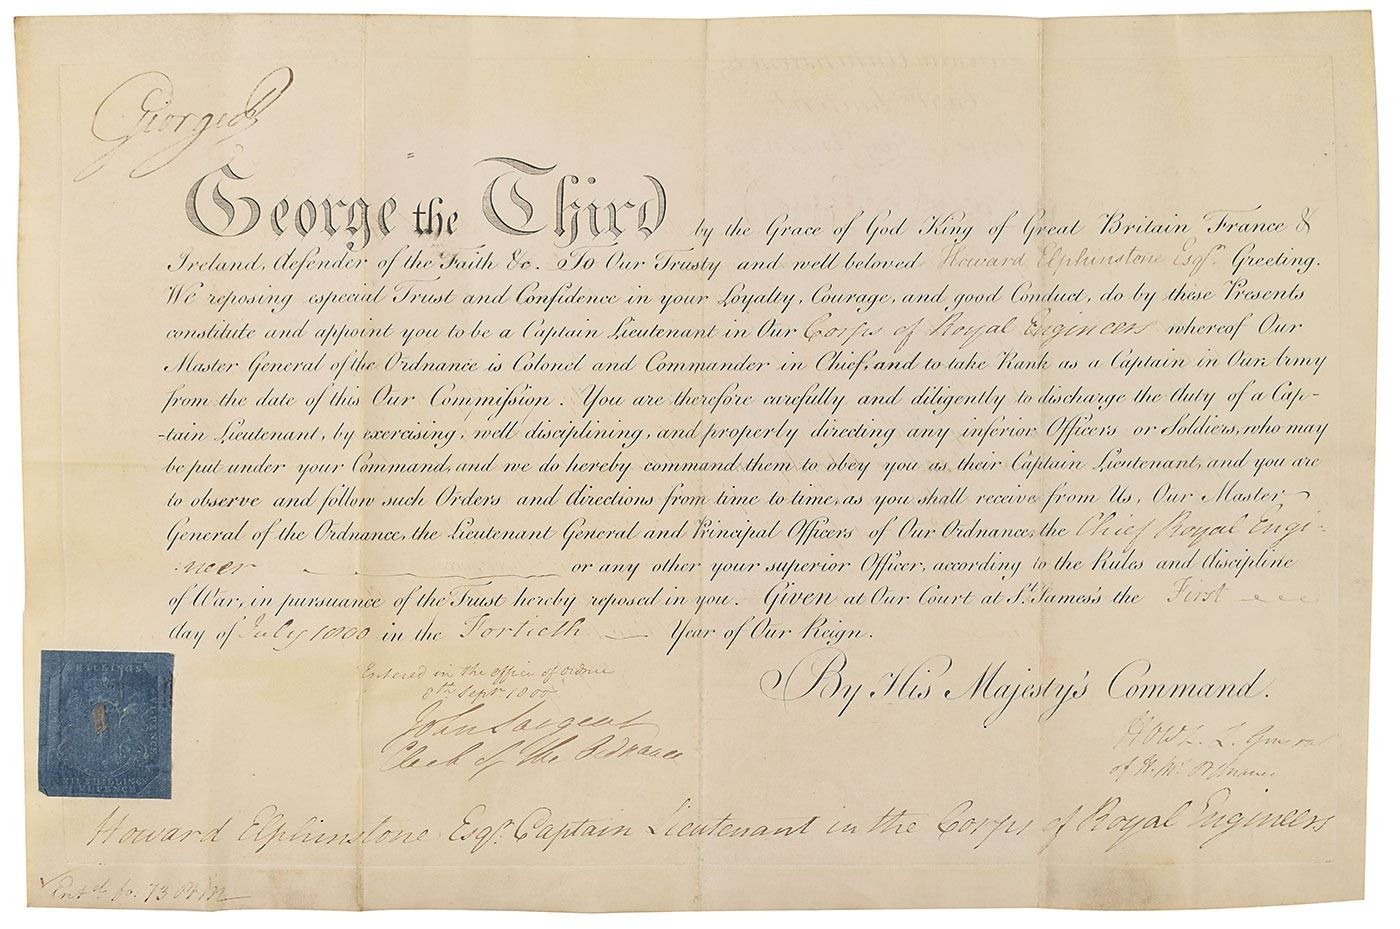 George R
George the Third by the Grace of God King of Great Britain France &
Ireland, defender of the Faith &c. To Our Trusty and well beloved Howard Elphinstone Esqr. Greeting.
We reposing especial Trust and Confidence in your Loyalty, Courage, and good Conduct, do by these Presents
constitute and appoint you to be a Captain Lieutenant in Our Corps of Royal Engineers whereof Our
Master General of the Ordnance is Colonel and Commander in Chief, and to take Rank as a Captain in Our Army
from the date of this Our Commission. You are therefore carefully and diligently to discharge the duty of a Cap-
-tain Lieutenant, by exercising, well disciplining, and properly directing any inferior Officers or Soldiers, who may
be put under your Command, and we do hereby command them to obey you as their Captain Lieutenant, and you are
to observe and follow such Orders and directions from time to time, as you shall receive from Us, Our Master
General of the Ordnance, the Lieutenant General and Principal Officers of Our Ordnance, the Chief Royal Engi-
-neer or any other your superior Officer, according to the Rules and discipline
of War, in pursuance of the Trust hereby reposed in you. Given at Our Court at St. James's the First
day of July 1800 in the Fortieth Year of Our Reign.
By His Majesty's Command.
Entered in the office of Ordnce
8th Septr 1800
John Sargent
Clerk of the Ordnance
Howe L. General
of H. Ms Ordnance
SHILLINGS
SIX SHILLINGS
PENCE
Howard Elphinstone Esqr. Captain Lieutenant in the Corps of Royal Engineers
Entd. fo. 73